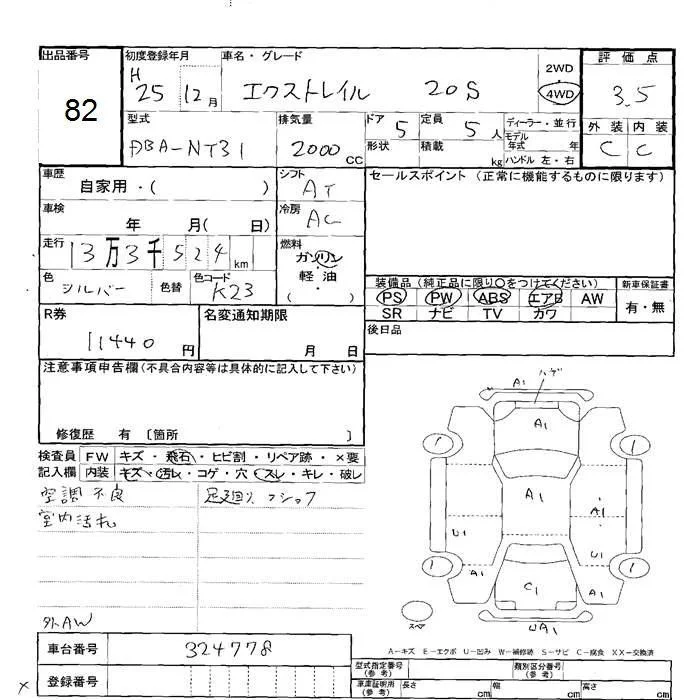 出品番号
82
初度登録年月
H
25 12月
車名・グレード
エクストレイル 20S
2WD
4WD
評価点
3.5
外装 内装
C C
型式
DBA-NT31
排気量
2000 CC
ドア 5
形状
定員 5 人
積載 kg
ディーラー・並行
モデル年式 年
ハンドル 左・右
車歴
自家用・( )
シフト
AT
車検
年 月( 日)
冷房
AC
走行
13万3千524km
燃料
ガソリン
軽・油
( )
色
シルバー
色替
色コード
K23
セールスポイント (正常に機能するものに限ります)
装備品 (純正品に限り○をつけてください)
PS PW ABS エアB AW
SR ナビ TV カワ
新車保証書
有・無
後日品
R券
11440 円
名変通知期限
月 日
注意事項申告欄(不具合内容等は具体的に記入して下さい)
修復歴 有 〔箇所 〕
検査員記入欄
FW キズ・飛石・ヒビ割・リペア跡・×要
内装 キズ・汚レ・コゲ・穴・スレ・キレ・破レ
空調不良
室内汚れ
足廻り
外AW
ハゲ
A1
A1
A1
A1
U1
U1
A1
A1
C1
UA1
スペア
A-キズ E-エクボ U-凹み W-補修跡 S-サビ C-腐食 XX-交換済
車台番号
324778
登録番号
型式指定番号
(参考)
類別区分番号
(参考)
車庫証明用
(参考)
長さ cm
幅 cm
高さ cm